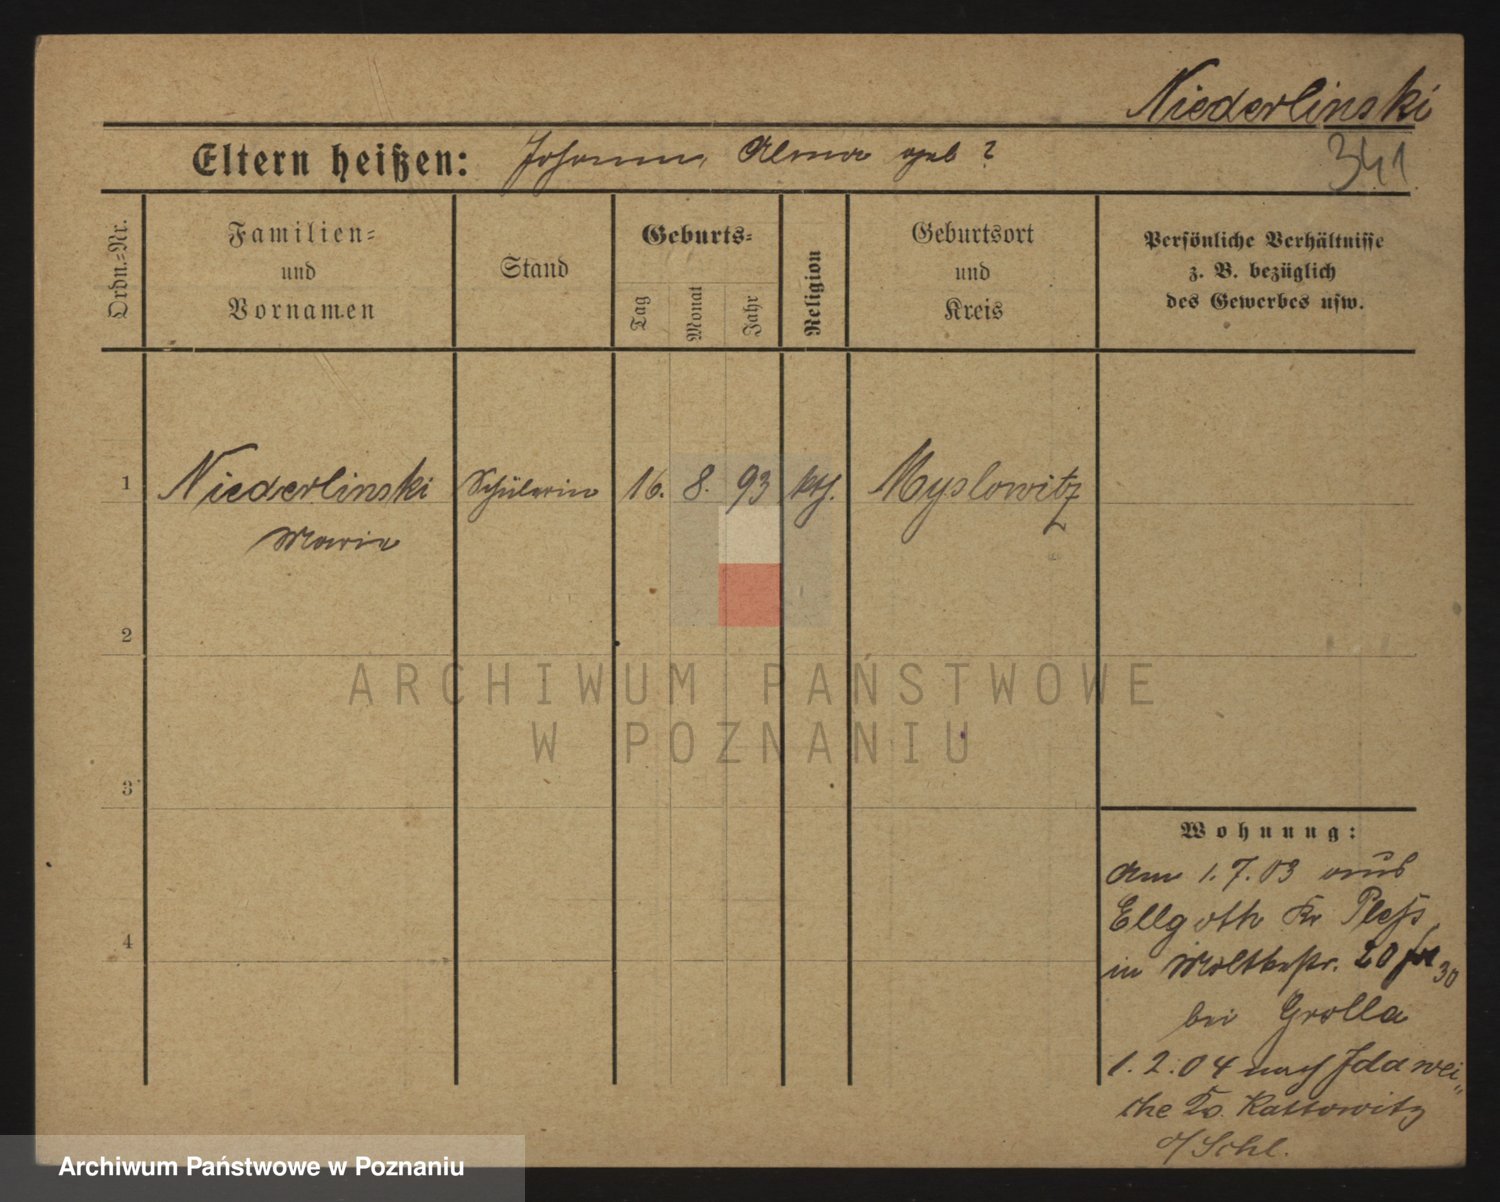 Niederlinski
341
Eltern heißen: Johann, Alma geb ?
Ordn.-Nr.
Familien-
und
Vornamen
Stand
Geburts-
Tag
Monat
Jahr
Religion
Geburtsort
und
Kreis
Persönliche Verhältnisse
z. B. bezüglich
des Gewerbes usw.
1 Niederlinski Schülerin 16. 8. 93 kth. Myslowitz
Marie
2
3
4
Wohnung:
am 1.7.03 aus
Ellgoth Kr Pleß
in Moltkestr. 20 30
bei Grolla
1.2.04 nach Idawei-
che Kattowitz
o/Schl.
ARCHIWUM PAŃSTWOWE
W POZNANIU
Archiwum Państwowe w Poznaniu